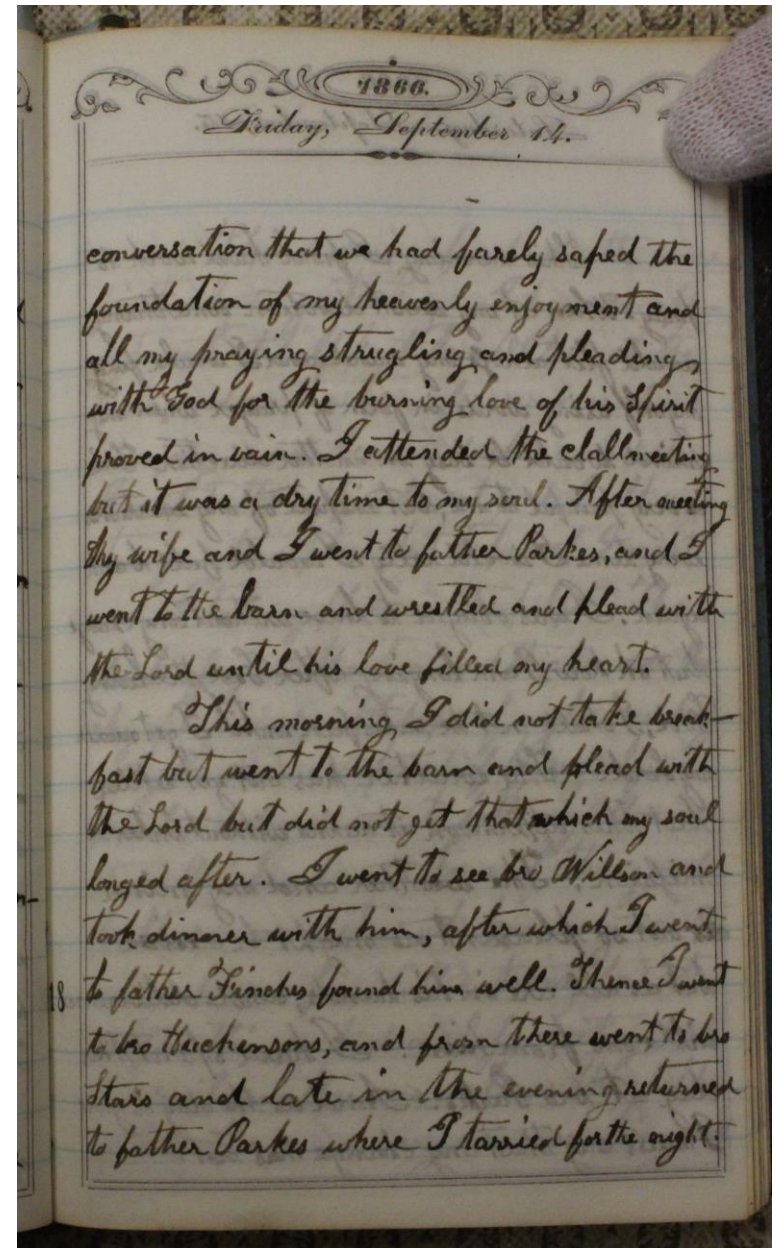 1866.
Friday, September 14.
conversation that we had farely saped the
foundation of my heavenly enjoyment and
all my praying strugling and pleading
with God for the burning love of his Spirit
proved in vain. I attended the clallmeeting
but it was a dry time to my soul. After meeting
My wife and I went to father Parkes, and I
went to the barn and wrestled and plead with
the Lord until his love filled my heart.
This morning I did not take break-
fast but went to the barn and plead with
the Lord but did not get that which my soul
longed after. I went to see bro Willson and
took dinner with him, after which I went
to father Finches found him well. Thence I went
to bro Huchinsons, and from there went to bro
Stars and late in the evening returned
to father Parkes where I tarried for the night.
18